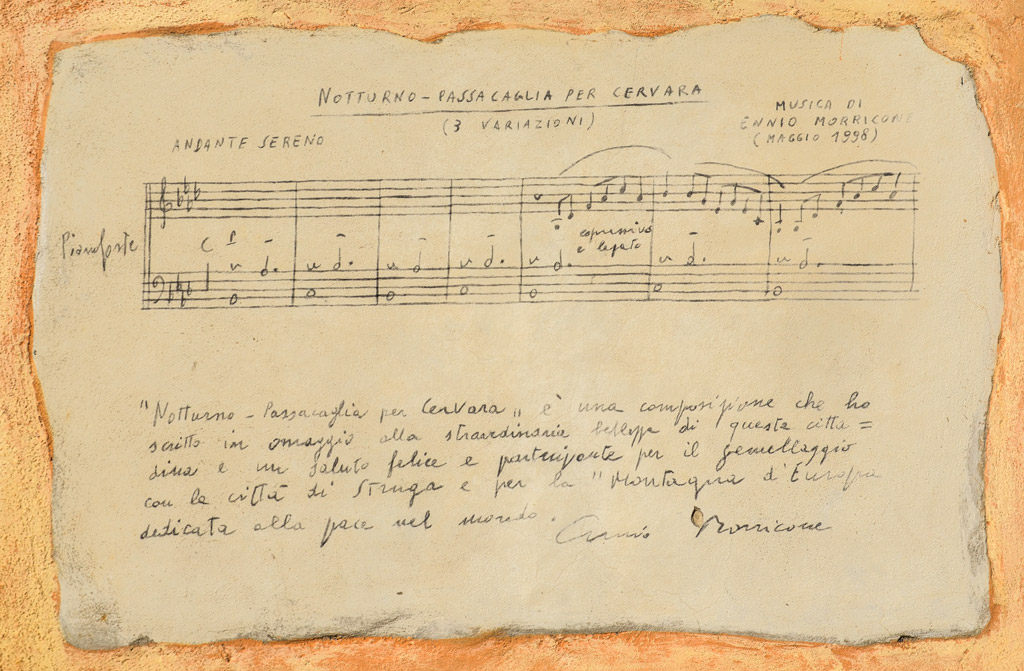 NOTTURNO - PASSACAGLIA PER CERVARA
(3 VARIAZIONI)
MUSICA DI
ENNIO MORRICONE
(MAGGIO 1998)
ANDANTE SERENO
Pianoforte
espressivo
e legato
"Notturno - Passacaglia per Cervara" è una composizione che ho
scritto in omaggio alla straordinaria bellezza di questa citta=
dina e un saluto felice e partecipante per il gemellaggio
con la città di Struga e per la "Montagna d'Europa
dedicata alla pace nel mondo.
Ennio Morricone